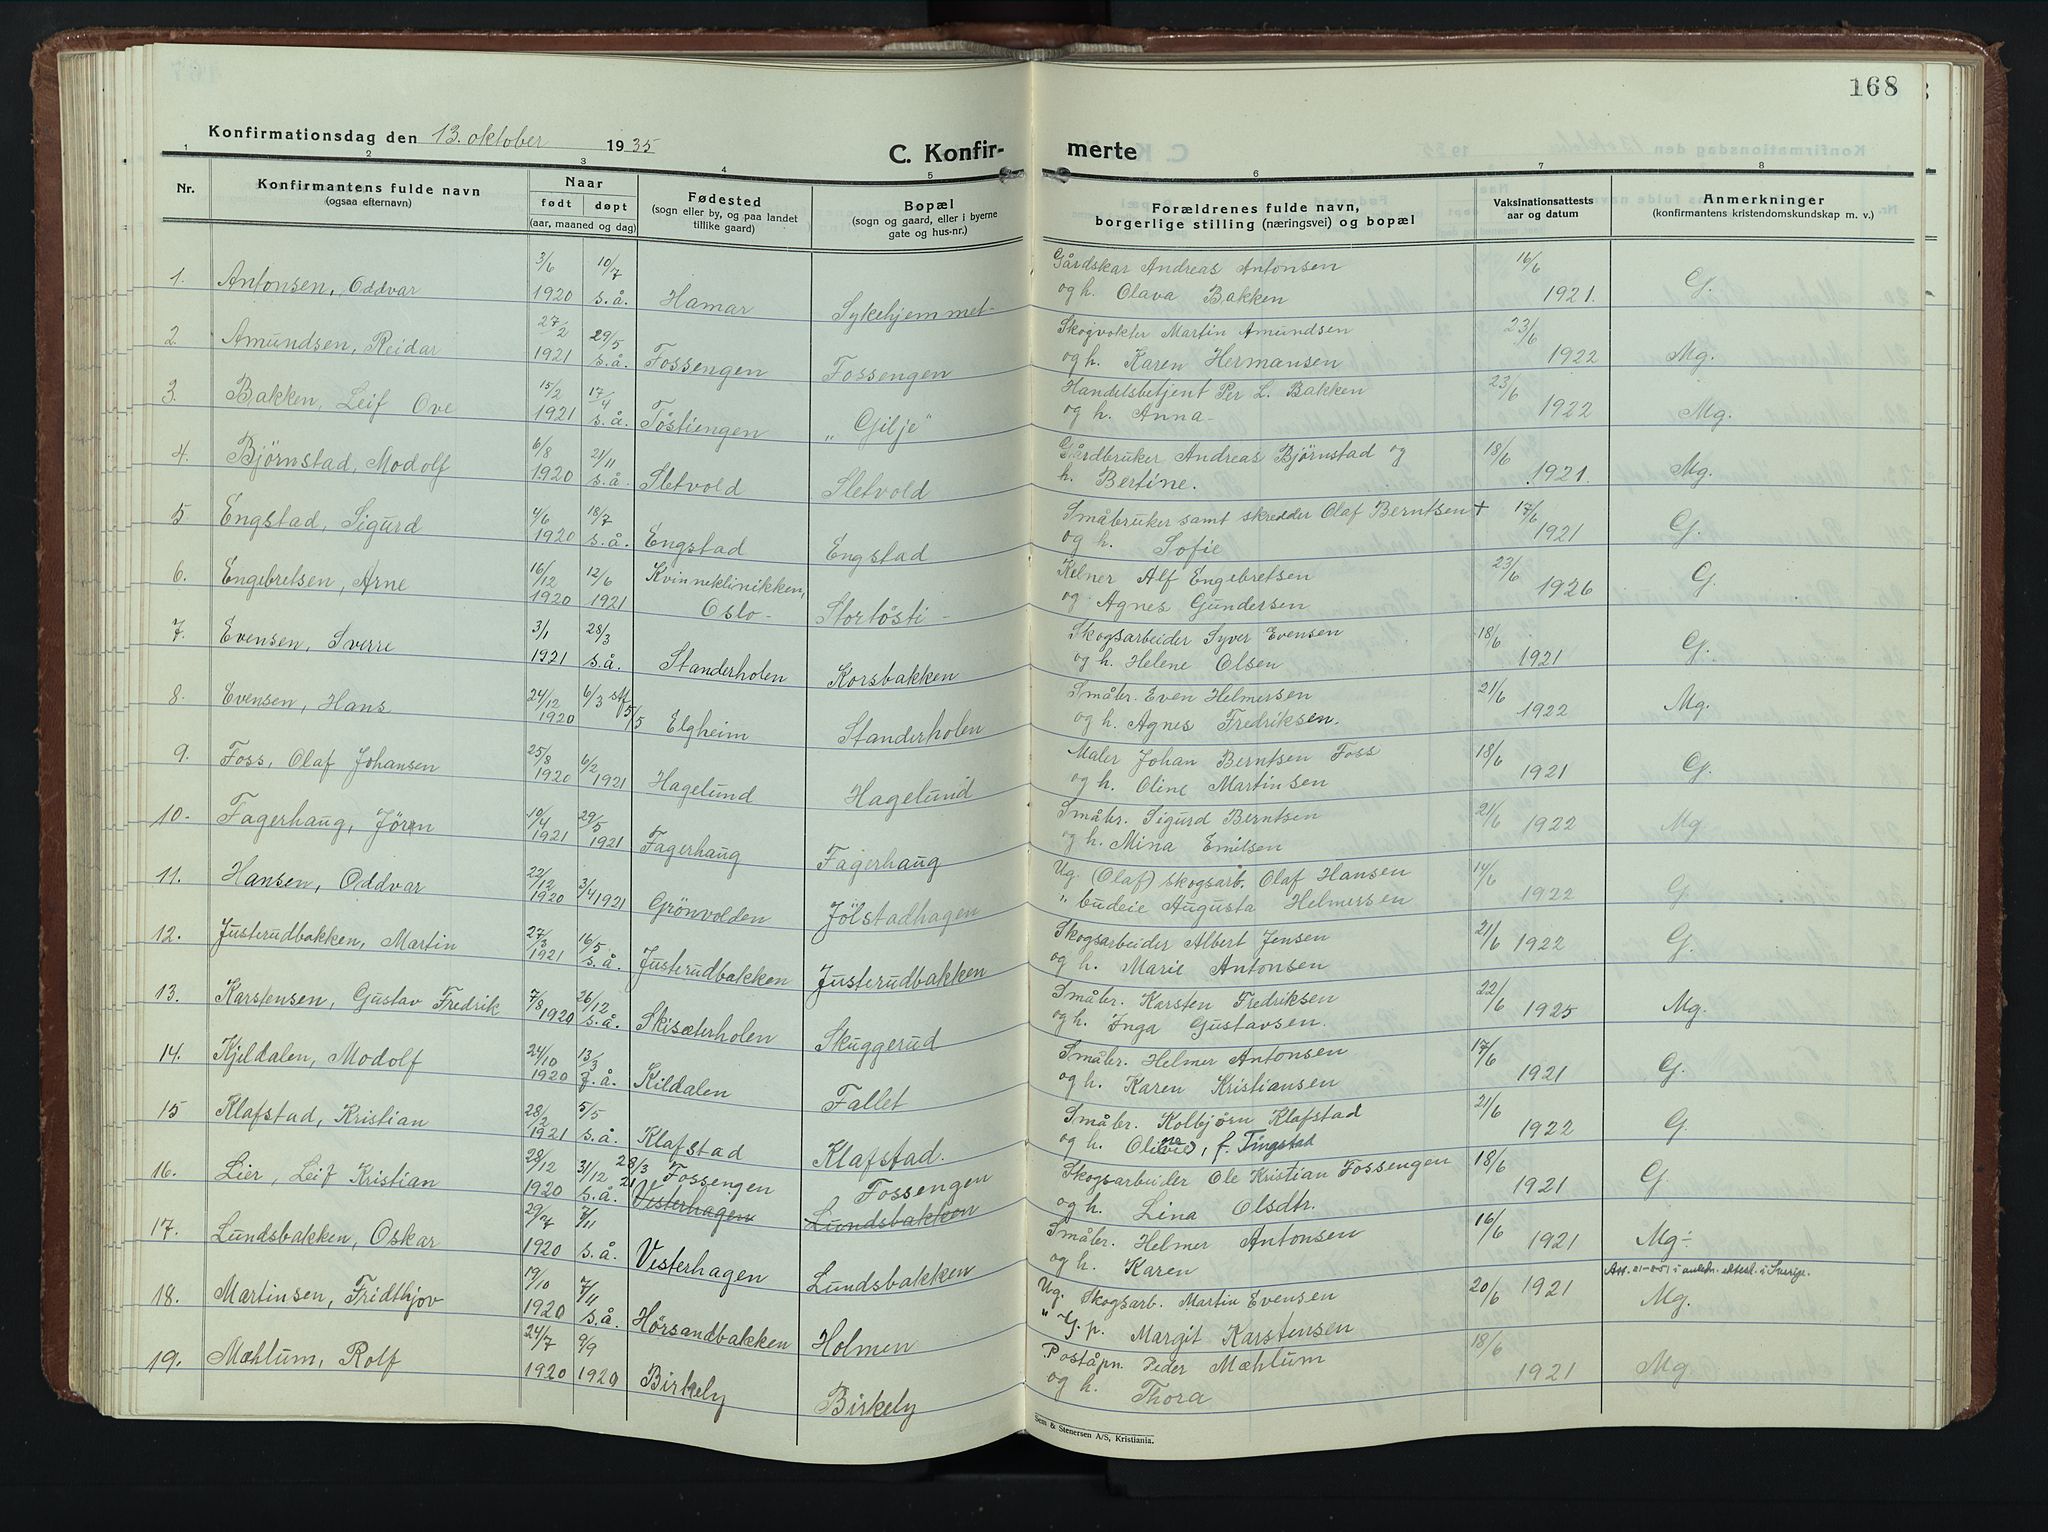 168
Konfirmationsdag den 13. oktober 1935
C. Konfir- merte
1 2 3 4 5 6 7 8
Nr. Konfirmantens fulde navn (ogsaa efternavn) Naar født døpt (aar, maaned og dag) Fødested (sogn eller by, og paa landet tillike gaard) Bopæl (sogn og gaard, eller i byerne gate og hus-nr.) Forældrenes fulde navn, borgerlige stilling (næringsvei) og bopæl Vaksinationsattests aar og datum Anmerkninger (konfirmantens kristendomskundskap m. v.)
1. Antonsen, Oddvar 3/6 1920 10/7 s.å. Hamar Sykehjemmet- Gårdskar Andreas Antonsen og h. Olava Bakken 16/6 1921. G.
2. Amundsen, Reidar 27/2 1921 29/5 s.å. Fossengen Fossengen Skogvokter Martin Amundsen og h. Karen Hermansen 23/6 1922 Mg.
3. Bakken, Leif Ove 15/2 1921 17/4 s.å. Töstiengen „Gilje" Handelsbetjent Per L. Bakken og h. Anna- 23/6 1922 Mg.
4. Björnstad, Modolf 6/8 1920 21/11 s.å. Sletvold Sletvold Gårdbruker Andreas Björnstad og h. Bertine. 18/6 1921. Mg.
5 Engstad, Sigurd 4/6 1920 18/7 s.å. Engstad Engstad Småbruker samt skredder Olaf Berntsen + og h. Sofie 17/6 1921 G.
6. Engebretsen, Arne 16/12 1920 12/6 1921 Kvinneklinikken, Oslo- Stortösti- Kelner Alf Engebretsen og Agnes Gundersen 23/6 1926 G.
7. Evensen, Sverre 3/1 1921 28/3 s.å. Standerholen Korsbakken Skogsarbeider Syver Evensen og h. Helene Olsen 18/6 1921 G.
8. Evensen, Hans 24/12 1920 6/3 stf. 5/5 Elgheim Standerholen Småbr. Even Helmersen og h. Agnes Fredriksen. 21/6 1922 Mg.
9. Foss, Olaf Johansen 25/8 1920 6/2 1921 Hagelund Hagelund Maler Johan Berntsen Foss og h. Oline Martinsen 18/6 1921 G.
10. Fagerhaug, Jören 10/4 1921 29/5 1921 Fagerhaug Fagerhaug Småbr. Sigurd Berntsen og h. Mina Emilsen 21/6 1922 Mg
11. Hansen, Oddvar 22/12 1920 3/4 1921 Grönvolden Jölstadhagen Ug. (Olaf) skogsarb. Olaf Hansen " budeie Augusta Helmersen 14/6 1922 G.
12. Justerudbakken, Martin 27/3 1921 16/5 s.å. Justerudbakken Justerudbakken Skogsarbeider Albert Jensen og h. Marie Antonsen 21/6 1922 G.
13. Karstensen, Gustav Fredrik 7/8 1920 26/12 s.å. Skisæterholen Skuggerud Småbr. Karsten Fredriksen og h. Inga Gustavsen. 22/6 1925 Mg.
14. Kjeldalen, Modolf 24/10 1920 13/3 f.å. Kildalen Fallet Småbr. Helmer Antonsen og h. Karen Kristiansen 17/6 1921 G.
15 Klafstad, Kristian 28/2 1921 5/5 s.å. Klafstad Klafstad. Småbr. Kolbjörn Klafstad og h. Oline, f. Tingstad 21/6 1922 G.
16. Lier, Leif Kristian 28/12 1920 31/12 s.å. 28/3 21 Fossengen Vesterhagen Fossengen Lundsbakken Skogsarbeider Ole Kristian Fossengen og h. Lina Olsdtr. 18/6 1921 G.
17. Lundsbakken, Oskar 29/7 1920 7/11 s.å. Vesterhagen Lundsbakken Småbr. Helmer Antonsen og h. Karen 16/6 1921 Mg÷
18. Martinsen, Fridthjov 19/10 1920 7/4 s.å. Hörsandbakken Holmen Ug. Skogsarb. Martin Evensen " G. p. Margit Karstensen 20/6 1921 i Sverige. Mg.
19. Mæhlum, Rolf 24/7 1920 9/9 1920 Birkely Birkely Poståpn. Peder Mæhlum og h. Thora 18/6 1921 Mg.
Sem & Stenersen A/S, Kristiania.